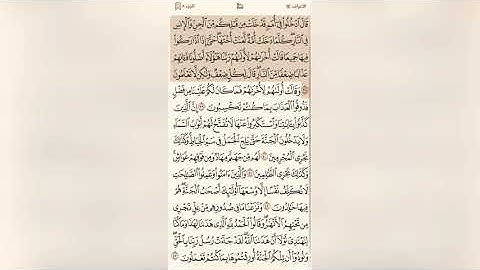 الأعراف الجزء ٨
قَالَ ٱدْخُلُوا۟ فِىٓ أُمَمٍ قَدْ خَلَتْ مِن قَبْلِكُم مِّنَ ٱلْجِنِّ وَٱلْإِنسِ
فِى ٱلنَّارِ ۖ كُلَّمَا دَخَلَتْ أُمَّةٌ لَّعَنَتْ أُخْتَهَا ۖ حَتَّىٰٓ إِذَا ٱدَّارَكُوا۟
فِيهَا جَمِيعًا قَالَتْ أُخْرَىٰهُمْ لِأُولَىٰهُمْ رَبَّنَا هَـٰٓؤُلَآءِ أَضَلُّونَا فَـَٔاتِهِمْ
عَذَابًا ضِعْفًا مِّنَ ٱلنَّارِ ۖ قَالَ لِكُلٍّ ضِعْفٌ وَلَـٰكِن لَّا تَعْلَمُونَ
٣٨ وَقَالَتْ أُولَىٰهُمْ لِأُخْرَىٰهُمْ فَمَا كَانَ لَكُمْ عَلَيْنَا مِن فَضْلٍ
فَذُوقُوا۟ ٱلْعَذَابَ بِمَا كُنتُمْ تَكْسِبُونَ ٣٩ إِنَّ ٱلَّذِينَ
كَذَّبُوا۟ بِـَٔايَـٰتِنَا وَٱسْتَكْبَرُوا۟ عَنْهَا لَا تُفَتَّحُ لَهُمْ أَبْوَٰبُ ٱلسَّمَآءِ
وَلَا يَدْخُلُونَ ٱلْجَنَّةَ حَتَّىٰ يَلِجَ ٱلْجَمَلُ فِى سَمِّ ٱلْخِيَاطِ ۚ وَكَذَٰلِكَ
نَجْزِى ٱلْمُجْرِمِينَ ٤٠ لَهُم مِّن جَهَنَّمَ مِهَادٌ وَمِن فَوْقِهِمْ غَوَاشٍ ۚ
وَكَذَٰلِكَ نَجْزِى ٱلظَّـٰلِمِينَ ٤١ وَٱلَّذِينَ ءَامَنُوا۟ وَعَمِلُوا۟ ٱلصَّـٰلِحَـٰتِ
لَا نُكَلِّفُ نَفْسًا إِلَّا وُسْعَهَآ أُو۟لَـٰٓئِكَ أَصْحَـٰبُ ٱلْجَنَّةِ ۖ هُمْ
فِيهَا خَـٰلِدُونَ ٤٢ وَنَزَعْنَا مَا فِى صُدُورِهِم مِّنْ غِلٍّ تَجْرِى
مِن تَحْتِهِمُ ٱلْأَنْهَـٰرُ ۖ وَقَالُوا۟ ٱلْحَمْدُ لِلَّهِ ٱلَّذِى هَدَىٰنَا لِهَـٰذَا وَمَا كُنَّا
لِنَهْتَدِىَ لَوْلَآ أَنْ هَدَىٰنَا ٱللَّهُ ۖ لَقَدْ جَآءَتْ رُسُلُ رَبِّنَا بِٱلْحَقِّ ۖ
وَنُودُوٓا۟ أَن تِلْكُمُ ٱلْجَنَّةُ أُورِثْتُمُوهَا بِمَا كُنتُمْ تَعْمَلُونَ ٤٣